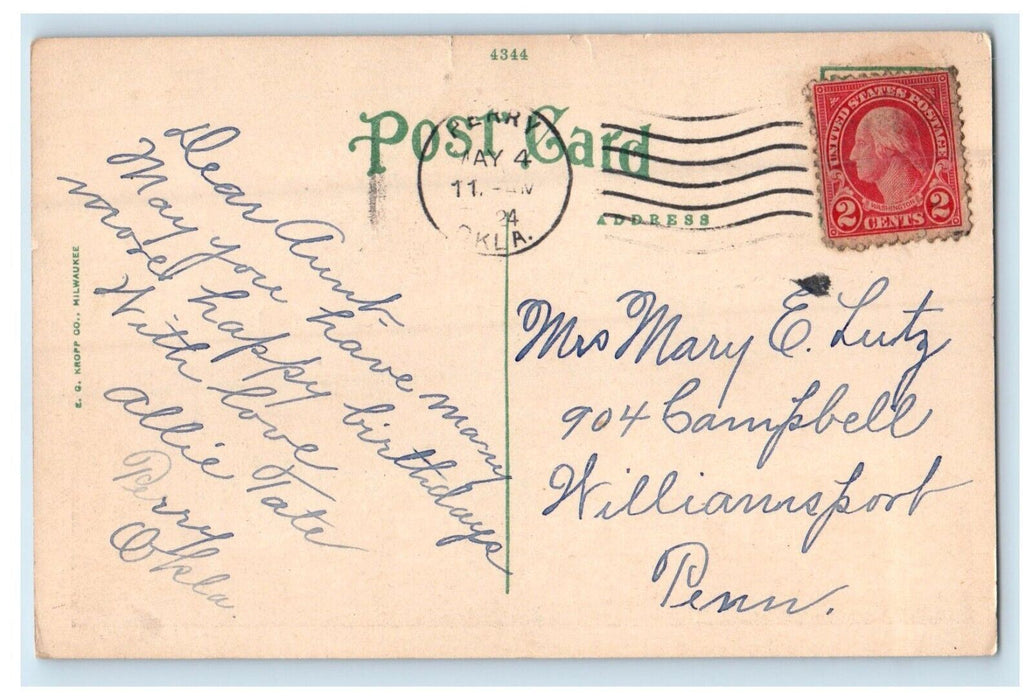 4344
POST Card
PERRY
MAY 4
11. - AM
24
OKLA.
ADDRESS
UNITED STATES POSTAGE
WASHINGTON
2 CENTS 2
E. C. KROPP CO., MILWAUKEE
Dear Aunt-
May you have many
more happy birthdays
With love
Allie Tate
Perry
Okla
Mrs Mary E. Lutz
904 Campbell
Williamsport
Penn.